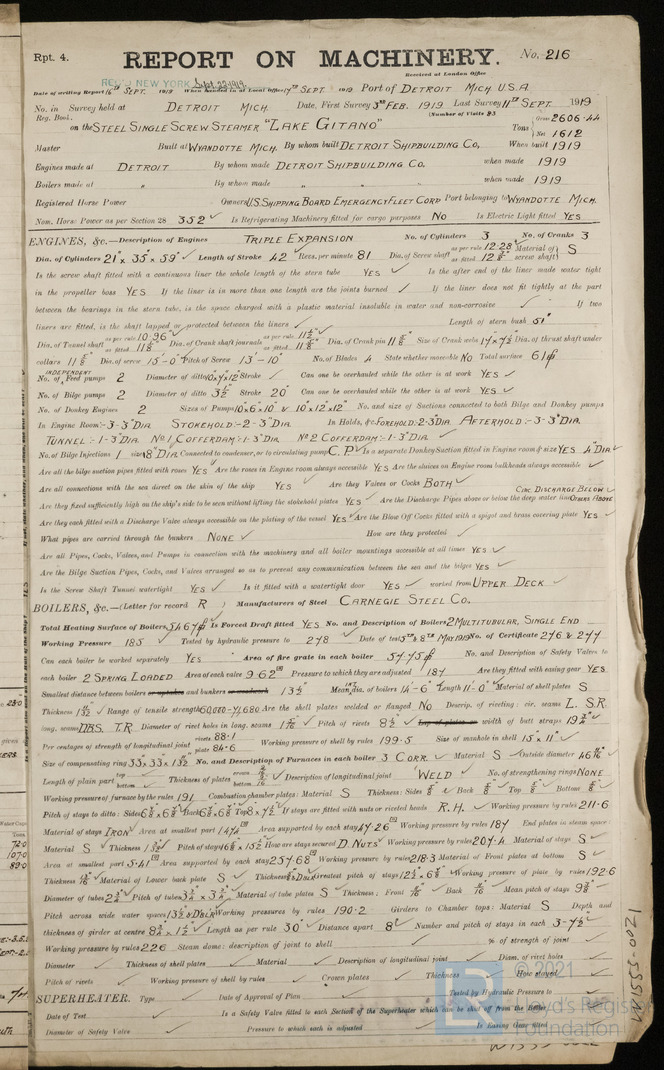 Rpt. 4. REPORT ON MACHINERY. No. 216
Received at London Office
REC'D NEW YORK Sept. 22 1919
Date of writing Report 16th SEPT. 1919 When handed in at Local Office 17th SEPT. 1919 Port of DETROIT MICH U.S.A.
No. in Survey held at DETROIT MICH. Date, First Survey 3rd FEB. 1919 Last Survey 11th SEPT 1919
Reg. Book. (Number of Visits 83
on the STEEL SINGLE SCREW STEAMER "LAKE GITANO" Tons Gross 2606.44 Net 1612
Master Built at WYANDOTTE MICH. By whom built DETROIT SHIPBUILDING CO, When built 1919
Engines made at DETROIT By whom made DETROIT SHIPBUILDING CO. when made 1919
Boilers made at " By whom made " when made 1919
Registered Horse Power Owners U.S. SHIPPING BOARD EMERGENCY FLEET CORP Port belonging to WYANDOTTE MICH.
Nom. Horse Power as per Section 28 352 Is Refrigerating Machinery fitted for cargo purposes NO Is Electric Light fitted YES
ENGINES, &c.—Description of Engines TRIPLE EXPANSION No. of Cylinders 3 No. of Cranks 3
Dia. of Cylinders 21" x 35" x 59" Length of Stroke 42 Revs. per minute 81 Dia. of Screw shaft as per rule 12.28" as fitted Material of screw shaft S
Is the screw shaft fitted with a continuous liner the whole length of the stern tube YES Is the after end of the liner made water tight
in the propeller boss YES If the liner is in more than one length are the joints burned If the liner does not fit tightly at the part
between the bearings in the stern tube, is the space charged with a plastic material insoluble in water and non-corrosive If two
liners are fitted, is the shaft lapped or protected between the liners Length of stern bush 51"
Dia. of Tunnel shaft as per rule 10.96" as fitted Dia. of Crank shaft journals as per rule as fitted Dia. of Crank pin Size of Crank webs Dia. of thrust shaft under
collars Dia. of screw 15'-0" Pitch of Screw 13'-10" No. of Blades 4 State whether moveable NO Total surface
INDEPENDENT
No. of Feed pumps 2 Diameter of ditto 10x7x12" Stroke Can one be overhauled while the other is at work YES
No. of Bilge pumps 2 Diameter of ditto 3½ Stroke 20" Can one be overhauled while the other is at work YES
No. of Donkey Engines 2 Sizes of Pumps 10x6x10" & 10"x12"x12" No. and size of Suctions connected to both Bilge and Donkey pumps
In Engine Room:- 3-3" DIA. STOKEHOLD:- 2-3" DIA. In Holds, &c. FOREHOLD:- 2-3" DIA. AFTERHOLD:- 3-3" DIA.
TUNNEL:- 1-3" DIA. No 1, COFFERDAM:- 1-3" DIA. No 2 COFFERDAM:- 1-3" DIA.
No. of Bilge Injections 1 size 8" DIA. Connected to condenser, or to circulating pump C.P. Is a separate Donkey Suction fitted in Engine room & size YES 4" DIA
Are all the bilge suction pipes fitted with roses YES Are the roses in Engine room always accessible YES Are the sluices on Engine room bulkheads always accessible
Are all connections with the sea direct on the skin of the ship YES Are they Valves or Cocks BOTH CIRC DISCHARGE BELOW
Are they fixed sufficiently high on the ship's side to be seen without lifting the stokehold plates YES Are the Discharge Pipes above or below the deep water line OTHERS ABOVE
Are they each fitted with a Discharge Valve always accessible on the plating of the vessel YES Are the Blow Off Cocks fitted with a spigot and brass covering plate YES
What pipes are carried through the bunkers NONE How are they protected
Are all Pipes, Cocks, Valves, and Pumps in connection with the machinery and all boiler mountings accessible at all times YES
Are the Bilge Suction Pipes, Cocks, and Valves arranged so as to prevent any communication between the sea and the bilges YES
Is the Screw Shaft Tunnel watertight YES Is it fitted with a watertight door YES worked from UPPER DECK
BOILERS, &c.—(Letter for record R ) Manufacturers of Steel CARNEGIE STEEL CO.
Total Heating Surface of Boilers 5467 Is Forced Draft fitted YES No. and Description of Boilers 2 MULTITUBULAR, SINGLE END
Working Pressure 185 Tested by hydraulic pressure to 278 Date of test No. of Certificate 276 & 277
Can each boiler be worked separately YES Area of fire grate in each boiler 57.75 No. and Description of Safety Valves to
each boiler 2 SPRING LOADED Area of each valve 9.62 Pressure to which they are adjusted 187 Are they fitted with easing gear YES
Smallest distance between boilers or uptakes and bunkers or woodwork 13½" Mean dia. of boilers 14'-6" Length 11'-0" Material of shell plates S
Thickness Range of tensile strength 60,000-71,680 Are the shell plates welded or flanged NO Descrip. of riveting: cir. seams L. S.R.
long. seams DBS. T.R Diameter of rivet holes in long. seams Pitch of rivets 8½ Lap of plates or width of butt straps
Per centages of strength of longitudinal joint rivets 88.1 plate 84.6 Working pressure of shell by rules 199.5 Size of manhole in shell 15" x 11"
Size of compensating ring 33x33x1 No. and Description of Furnaces in each boiler 3 CORR. Material S Outside diameter
Length of plain part top bottom Thickness of plates crown bottom Description of longitudinal joint WELD No. of strengthening rings NONE
Working pressure of furnace by the rules 191 Combustion chamber plates: Material S Thickness: Sides Back Top Bottom
Pitch of stays to ditto: Sides Back Top If stays are fitted with nuts or riveted heads R.H. Working pressure by rules 211.6
Material of stays IRON Area at smallest part Area supported by each stay 47.26 Working pressure by rules 187 End plates in steam space:
Material S Thickness Pitch of stays How are stays secured D. NUTS Working pressure by rules 207.4 Material of stays S
Area at smallest part 5.41 Area supported by each stay 257.68 Working pressure by rules 218.3 Material of Front plates at bottom S
Thickness Material of Lower back plate S Thickness Greatest pitch of stays Working pressure of plate by rules 192.6
Diameter of tubes Pitch of tubes Material of tube plates S Thickness: Front Back Mean pitch of stays
Pitch across wide water spaces Working pressures by rules 190.2 Girders to Chamber tops: Material S Depth and
thickness of girder at centre Length as per rule 30" Distance apart 8" Number and pitch of stays in each 3-7½"
Working pressure by rules 226 Steam dome: description of joint to shell % of strength of joint
Diameter Thickness of shell plates Material Description of longitudinal joint Diam. of rivet holes
Pitch of rivets Working pressure of shell by rules Crown plates Thickness How stayed
SUPERHEATER. Type Date of Approval of Plan Tested by Hydraulic Pressure to
Date of Test Is a Safety Valve fitted to each Section of the Superheater which can be shut off from the Boiler
Diameter of Safety Valve Pressure to which each is adjusted Is Easing Gear fitted
© 2021
Lloyd's Register
Foundation